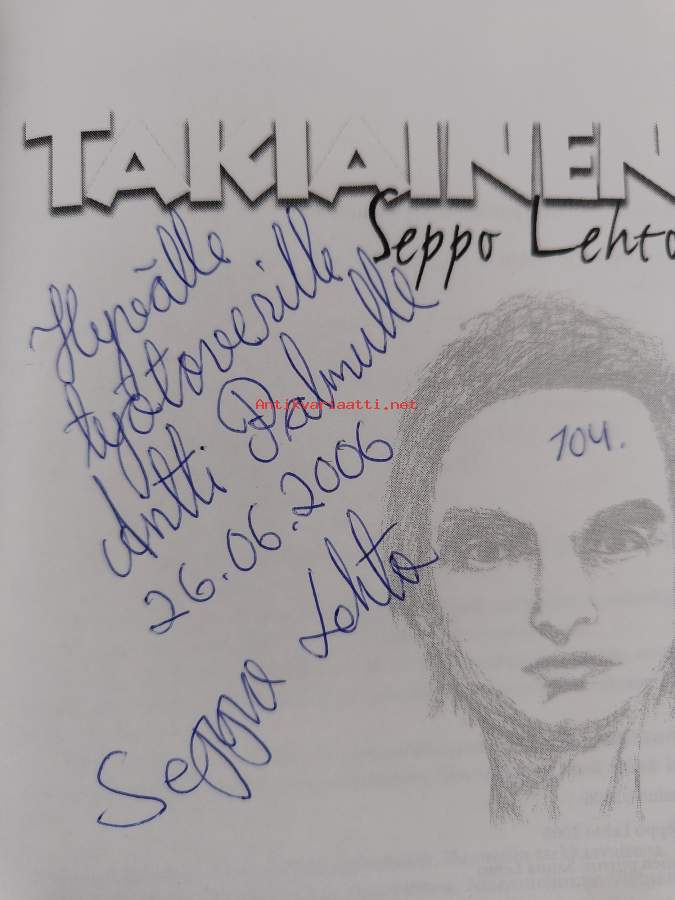 TAKIAINEN
Seppo Lehto
Hyvälle
työtoverille
Antti Palmulle
26.06.2006
Seppo Lehto
104.
Antikvariaatti.net